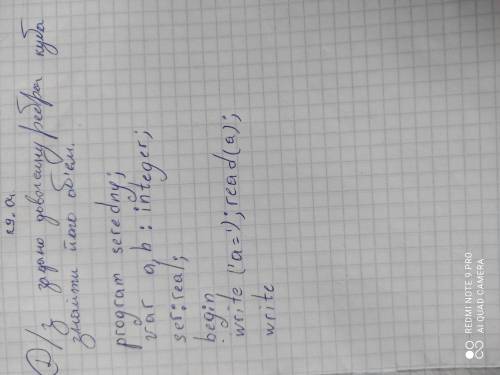 Д/з задано довжину ребра куба
знайти його об'єм.
program seredny;
var a, b : integer;
ser: real;
begin
write ('a='); read(a);
write
REDMI NOTE 9 PRO
AI QUAD CAMERA